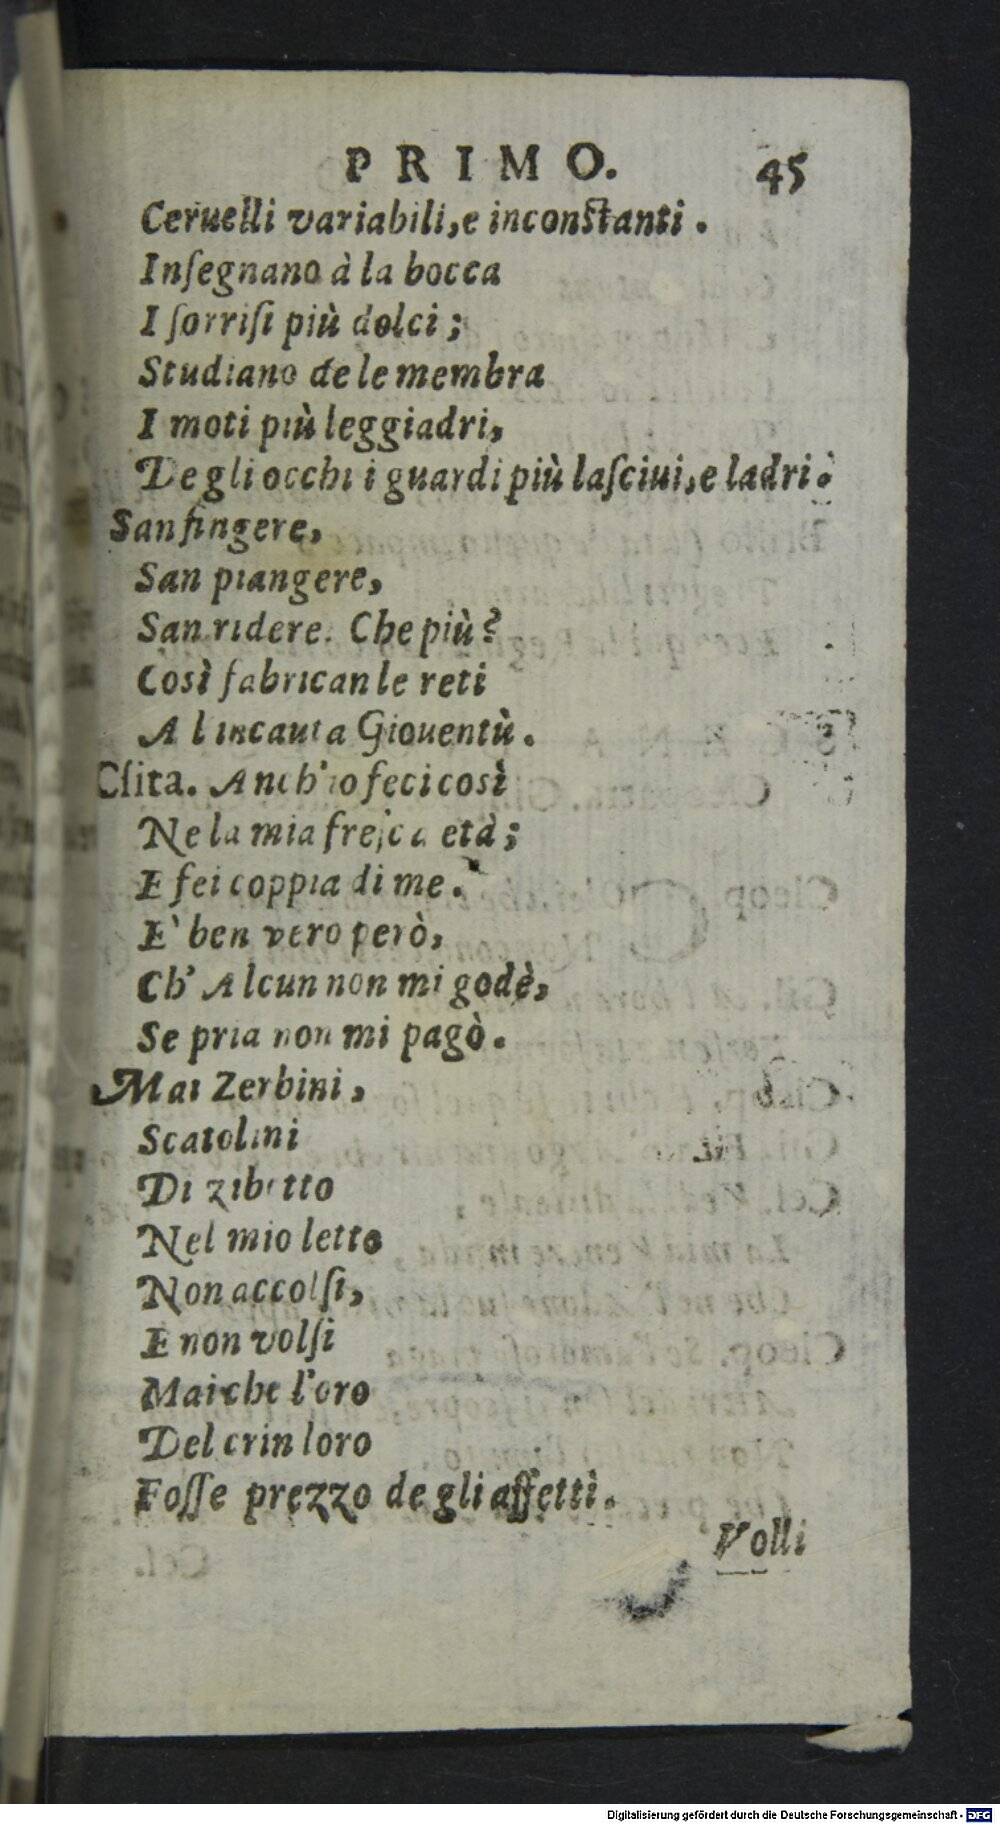 PRIMO. 45
Ceruelli variabili, e inconſtanti.
Inſegnano à la bocca
I ſorriſi più dolci;
Studiano de le membra
I moti più leggiadri,
De gli occhi i guardi più laſciui, e ladri.
San fingere,
San piangere,
San ridere. Che più?
Così fabrican le reti
A l incauta Giouentù.
Cſita. Anch'io feci così
Ne la mia freſca età;
E fei coppia di me.
E` ben vero però,
Ch' Alcun non mi godè,
Se pria non mi pagò.
Mai Zerbini,
Scatolini
Di zibetto
Nel mio letto
Non accolſi,
E non volſi
Mai che l'oro
Del crin loro
Foſſe prezzo de gli affetti.
Volli
Digitalisierung gefördert durch die Deutsche Forschungsgemeinschaft - DFG